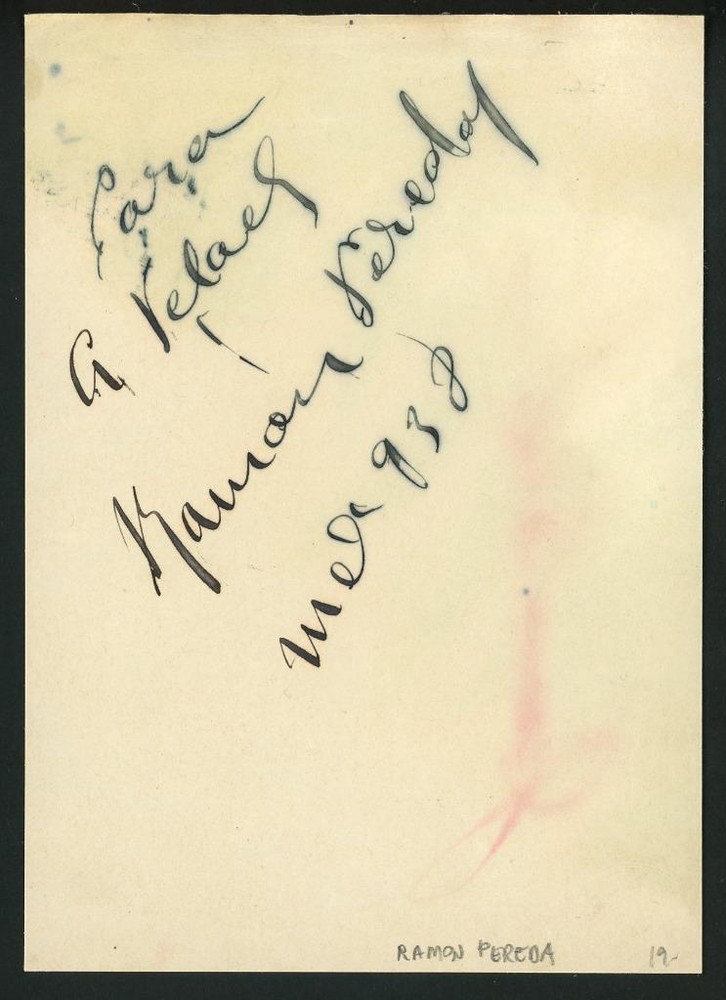 Para
A Pelaez
Ramon Pereda
Mex. 938
RAMON PEREDA 19-